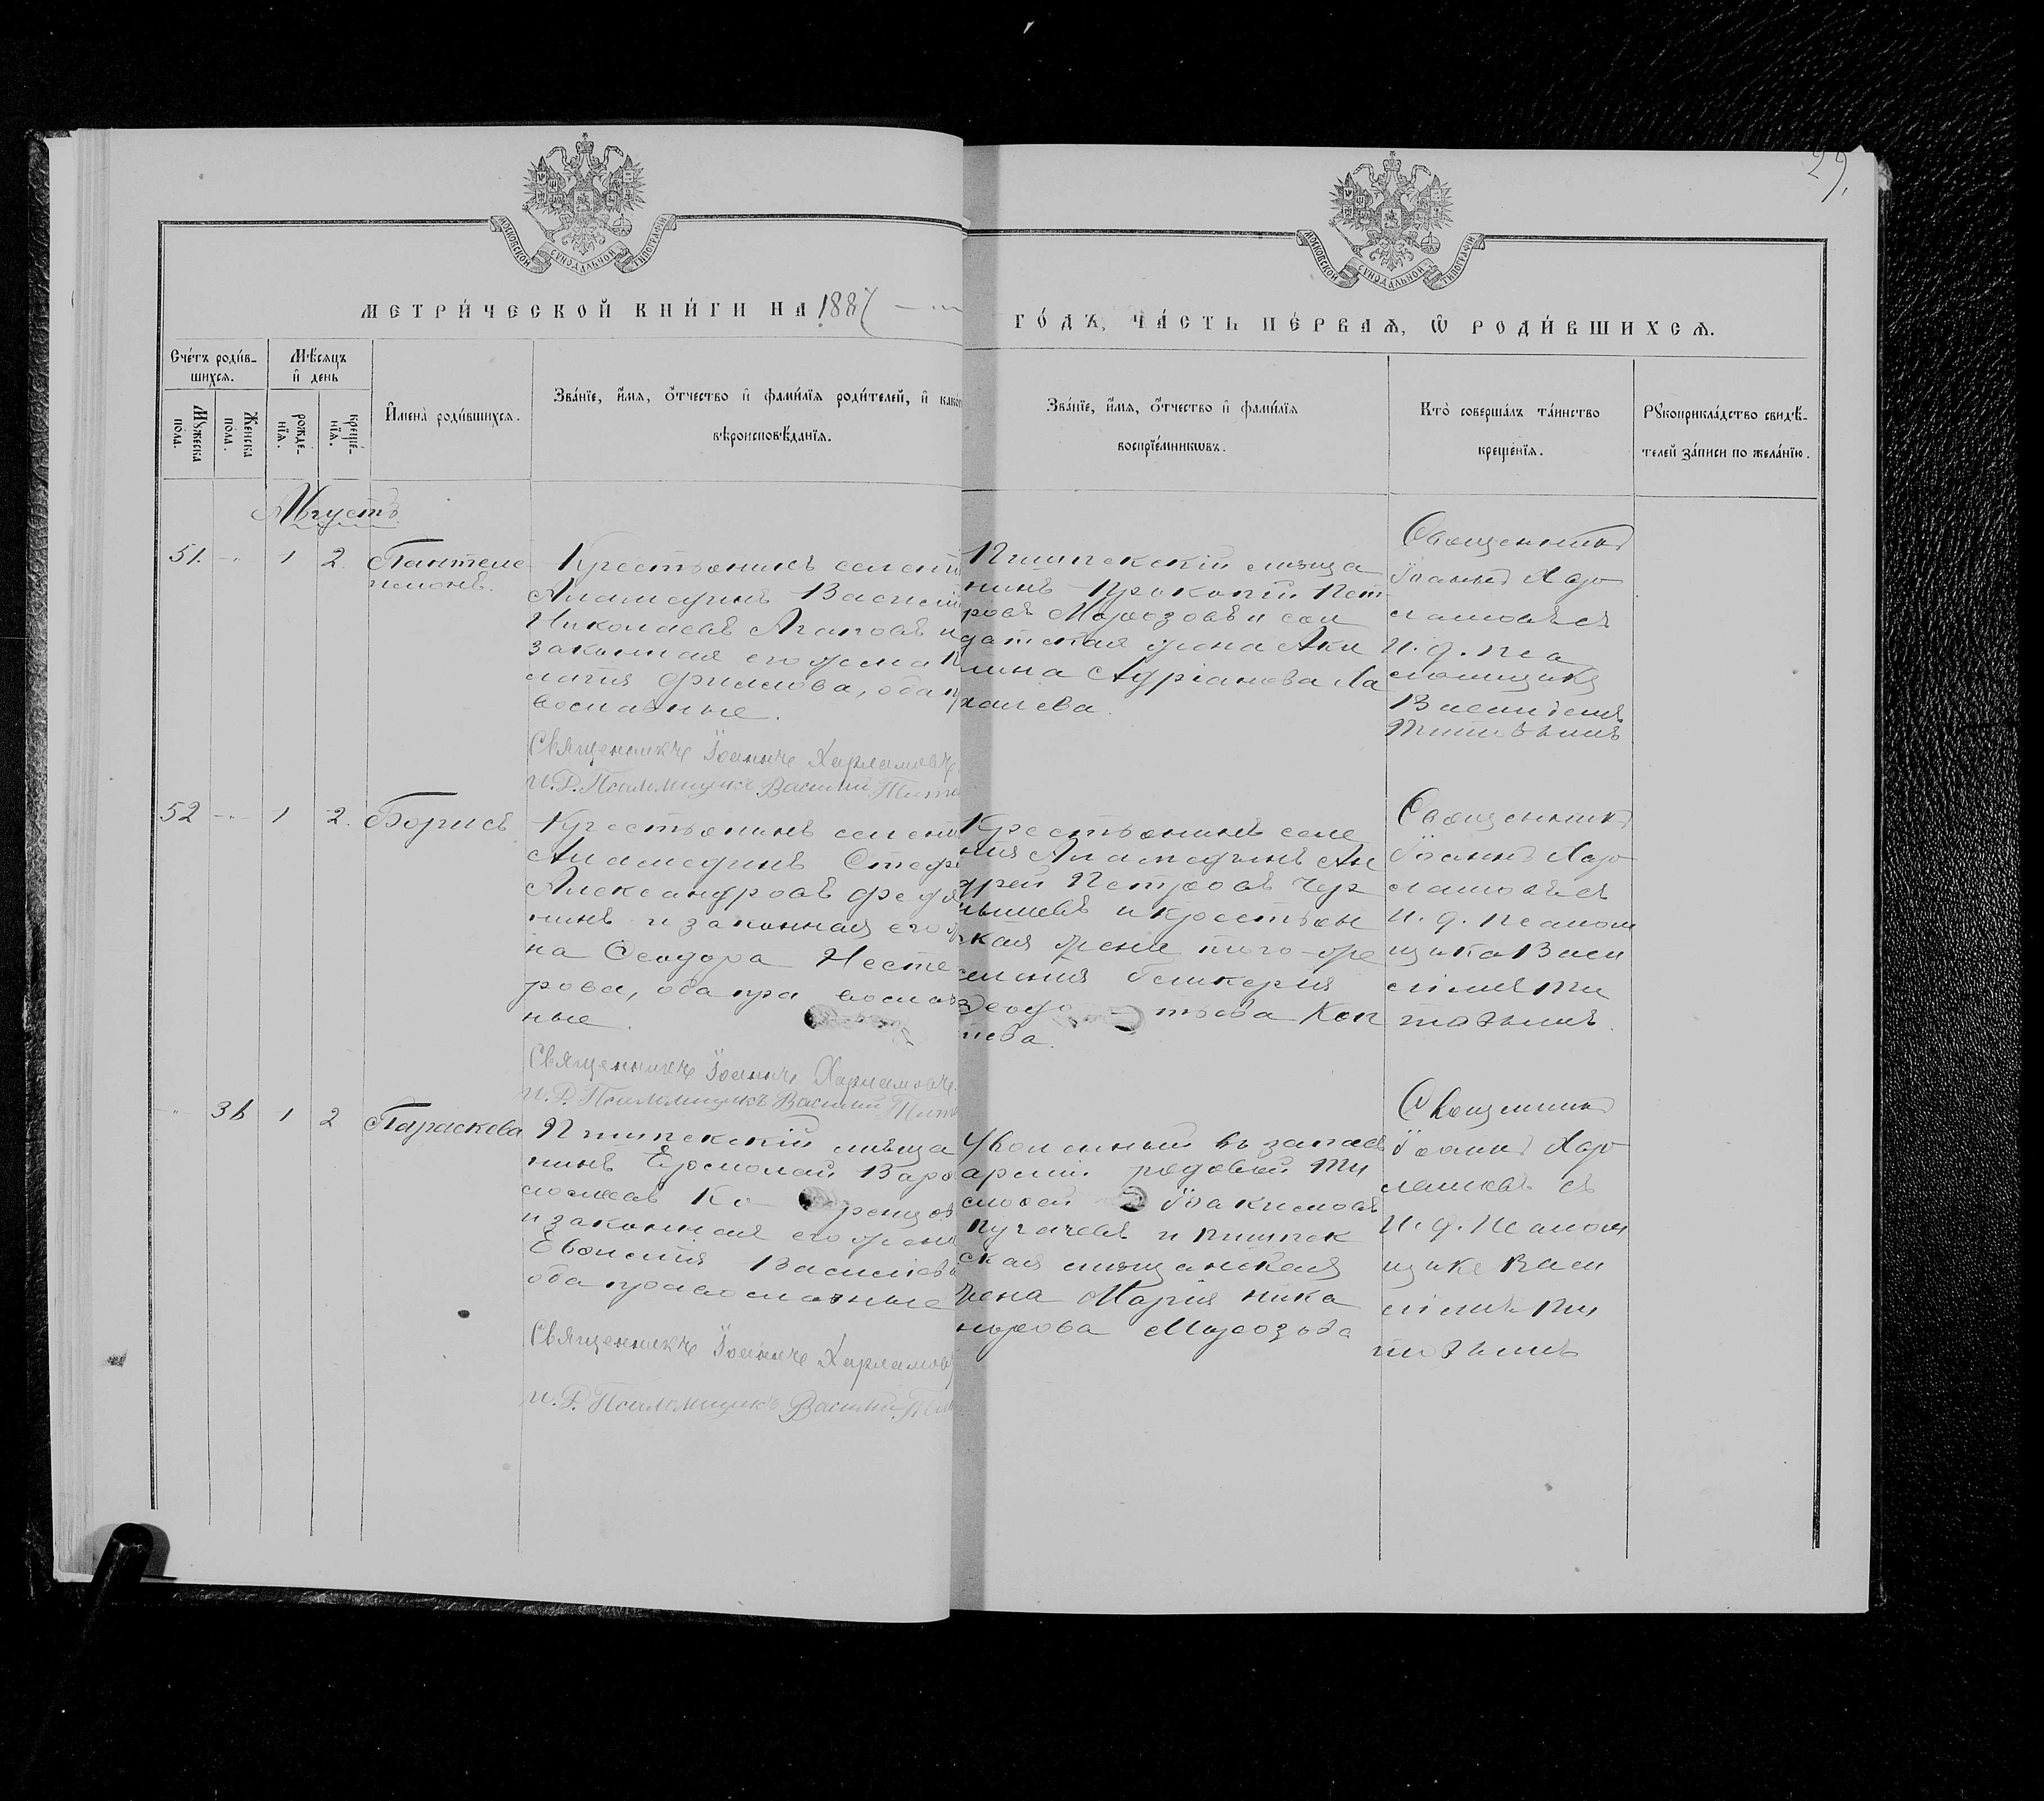 29.
МОСКОВСКОЙ СѴНОДАЛЬНОЙ ТИПОГРАФІИ
МОСКОВСКОЙ СѴНОДАЛЬНОЙ ТИПОГРАФІИ
МЕТРИ́ЧЕСКОЙ КНИ́ГИ НА 1887
ГО́ДЪ, ЧА́СТЬ ПЕ́РВАѦ, Ѡ҆ РОДИ́ВШИХСѦ.
Сче́тъ роди́в-
шихсѧ.
Мѣ́сѧцъ
и҆ день
Мꙋ́жеска
по́ла.
Же́нска
по́ла.
рожде́-
нїѧ.
креще́-
нїѧ.
И҆мена̀ роди́вшихсѧ.
Зва́нїе, и҆́мѧ, ѻ҆́тчество и҆ фами́лїѧ роди́телей, и҆ како
вѣроисповѣ́данїѧ.
Зва́нїе, и҆́мѧ, ѻ҆́тчество и҆ фами́лїѧ
воспрїе́мникѡвъ.
Кто̀ соверша́лъ та́инство
креще́нїѧ.
Рꙋкоприкла́дство свидѣ́-
телей за́писи по жела́нїю.
Августъ
51. 1 2. Пантеле
имонъ.
Крестьянинъ селені
Аламединъ Василі
Николаевъ Агаповъ и
законная его жена П
лагія Филлова, оба п
вославные.
Священникъ Іоаннъ Харламовъ
И.Д. Псаломщикъ Василій Тито
Пишпекскій мѣща
нинъ Прокопій Пет
ровъ Морозовъ и сол
датская жена Аки
лина Адріанова Ха
халева.
Священникъ
Іоаннъ Хар
ламовъ съ
и. д. пса
ломщика
Василіемъ
Титовымъ
52 1 2. Борисъ
Крестьянинъ селені
Аламединъ Стефа
Александровъ Федя
нинъ и законная его ж
на Феодора Несте
рова, оба пра вослав
ные.
Священникъ Іоаннъ Харламовъ.
И.Д. Псаломщикъ Василій Тито
Крестьянинъ селе
нія Аламединъ Ан
дрей Петровъ Чер
нышевъ и крестьян
ская жена того-же
селенія Гликерія
това Коп
нева.
Священникъ
Іоаннъ Хар
ламовъ съ
и. д. псалом
щика Васи
ліемъ Ти
товымъ.
36 1 2 Параскева
Пишпекскій мѣща
нинъ Ермолай Варо
ломеевъ Ко ренцов
и законная его жена
Евдокія Василіева
оба православные
Священникъ Іоаннъ Харламовъ
И.Д. Псаломщикъ Василій Тит
Уволенный въ запасъ
арміи рядовой Ти
мофей Іоакимовъ
Пугачевъ и Пишпек
ская мѣщанская
жена Марія Ника
норова Морозова
Священникъ
Іоаннъ Хар
ламовъ съ
и. д. псалом
щика Васи
ліемъ Ти
товымъ